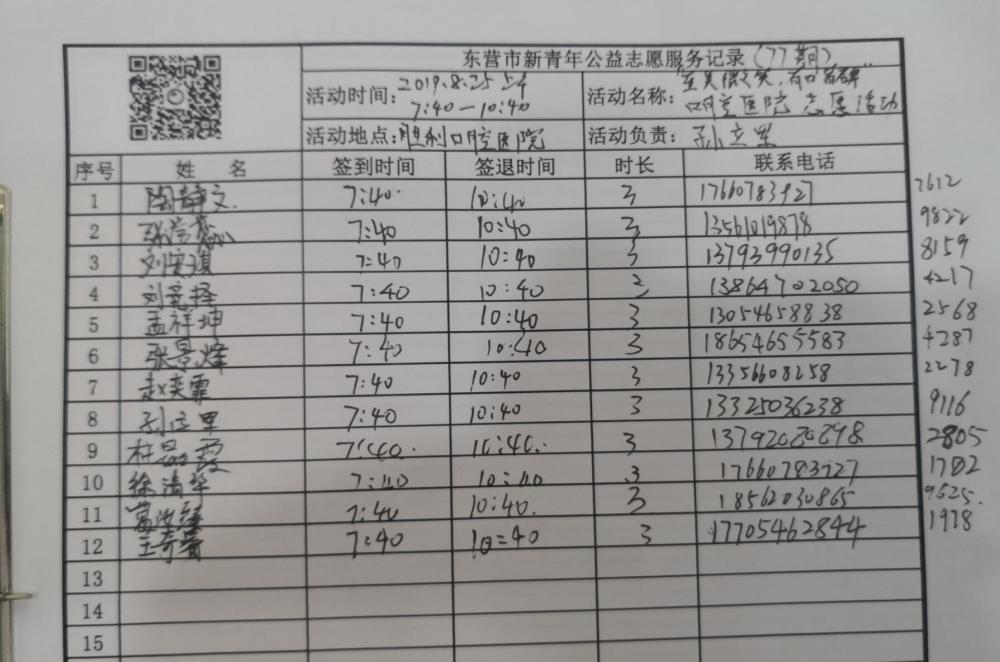 东营市新青年公益志愿服务记录(77期)
活动时间: 2019.8.25 上午 7:40—10:40
活动名称: 口腔医院志愿活动
活动地点: 胜利口腔医院 活动负责: 孙立里
序号 姓 名 签到时间 签退时间 时长 联系电话
1 陶静文 7:40 10:40 3 17660783927 7612
2 7:40 10:40 3 13561019878 9822
3 刘安淇 7:40 10:40 3 13793990135 8159
4 刘竞择 7:40 10:40 3 13864702050 4217
5 孟祥坤 7:40 10:40 3 13054658838 2568
6 张景烽 7:40 10:40 3 18654655583 4287
7 赵奕霏 7:40 10:40 3 13356608258 2278
8 孙立里 7:40 10:40 3 13325036238 9116
9 杜晶霞 7:40 10:40 3 13792080898 2805
10 徐清华 7:40 10:40 3 17660783927 1702
11 7:40 10:40 3 18562030865 9625
12 7:40 10:40 3 17705462844 1978
13
14
15